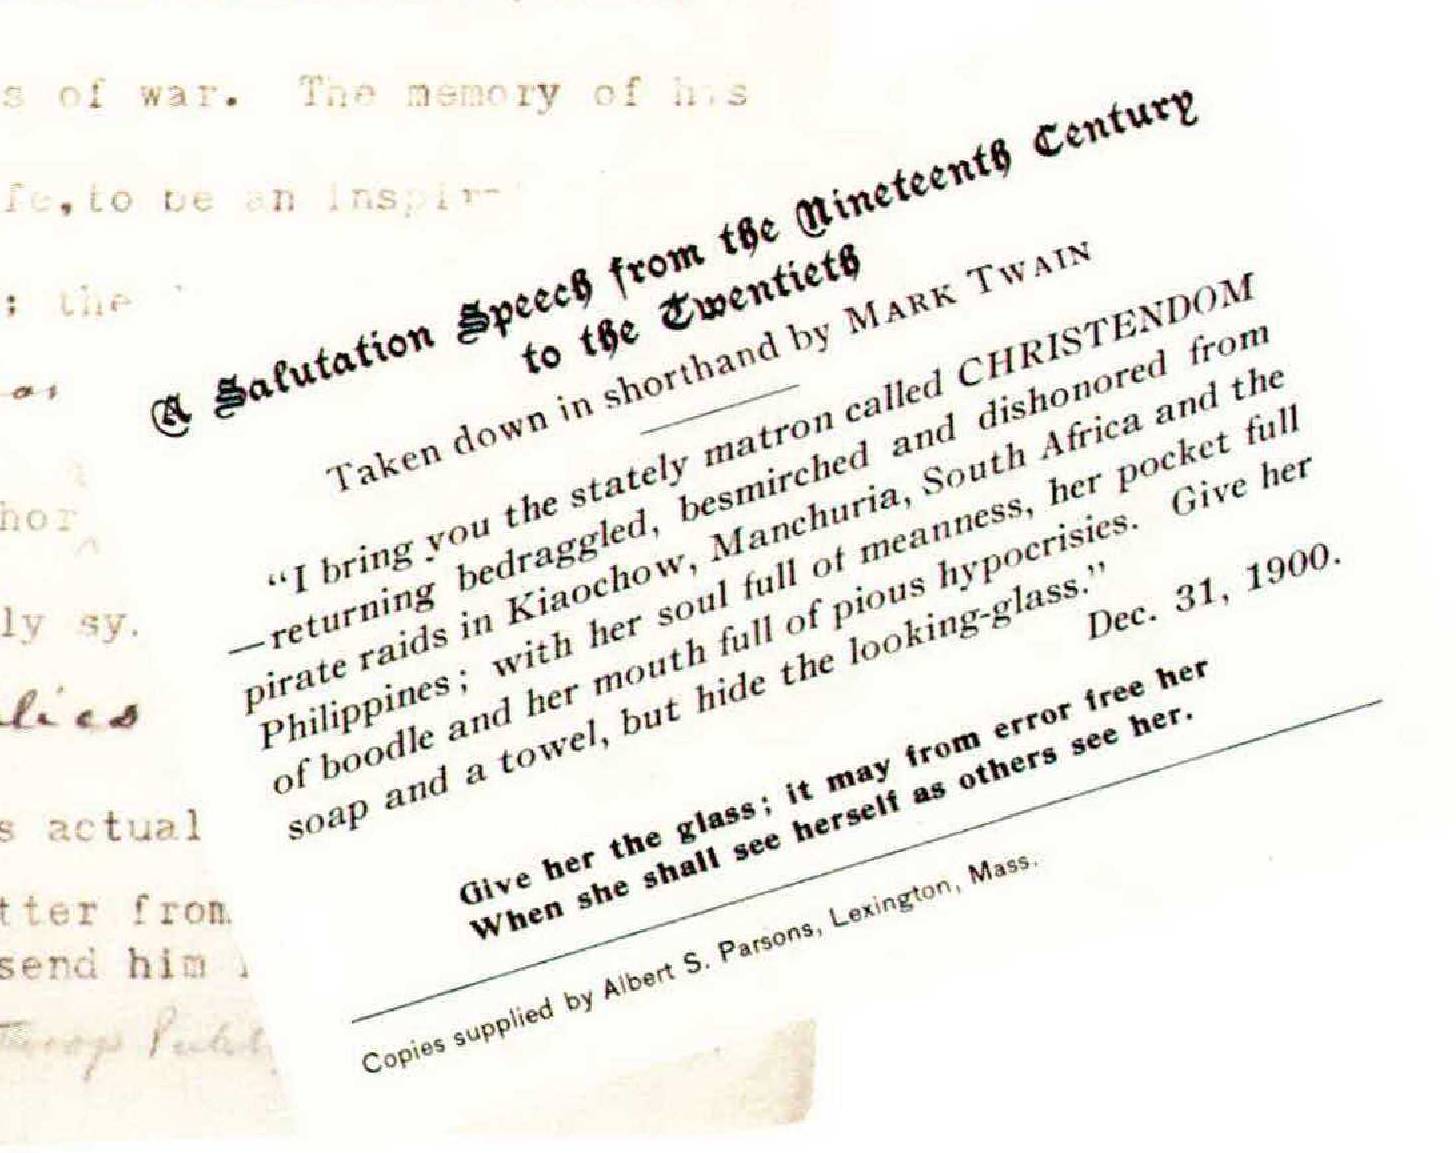 s of war. The memory of his
fe, to be an inspir-
; the
hor
ly sy.
lies
s actual
tter from
send him
A Salutation Speech from the Nineteenth Century
to the Twentieth
Taken down in shorthand by MARK TWAIN
“I bring you the stately matron called CHRISTENDOM
—returning bedraggled, besmirched and dishonored from
pirate raids in Kiaochow, Manchuria, South Africa and the
Philippines; with her soul full of meanness, her pocket full
of boodle and her mouth full of pious hypocrisies. Give her
soap and a towel, but hide the looking-glass.”
Dec. 31, 1900.
Give her the glass; it may from error free her
When she shall see herself as others see her.
Copies supplied by Albert S. Parsons, Lexington, Mass.